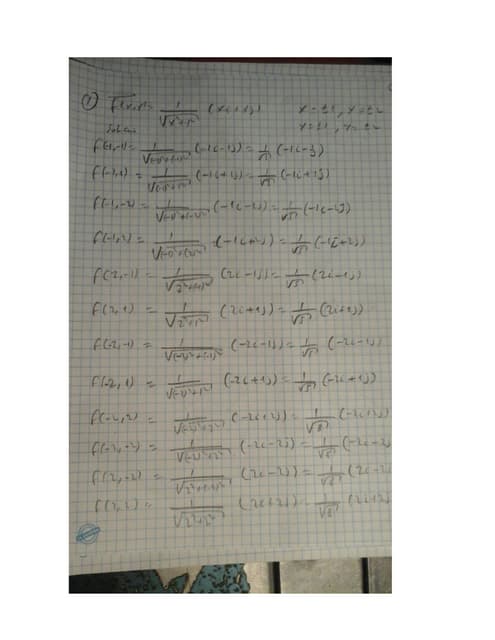 ① F(x,y) = 1/√(x²+y²) (xi + yj) x = ±1, x = ±2
y = ±1, y = ±2
f(-1,-1) = 1/√((-1)²+(-1)²) (-1i-1j) =
f(-1,1) = 1/√((-1)²+1²) (-1i+1j) =
f(-1,-2) = 1/√((-1)²+(-2)²) (-1i-2j) = 1/√5 (-1i-2j)
f(-1,2) = 1/√((-1)²+(2)²) (-1i+2j) = 1/√5 (-1i+2j)
f(2,-1) = 1/√(2²+(-1)²) (2i-1j) = 1/√5 (2i-1j)
f(2,1) = 1/√(2²+1²) (2i+1j) = 1/√5 (2i+1j)
f(-2,-1) = 1/√((-2)²+(-1)²) (-2i-1j) = 1/√5 (-2i-1j)
f(-2,1) = 1/√((-2)²+1²) (-2i+1j) = 1/√5 (-2i+1j)
f(-2,2) = 1/√((-2)²+2²) (-2i+2j) = 1/√8 (-2i+2j)
1/√((-2)²+2²) (-2i-2j) = 1/√8 (-2i-2j
f(2,-2) = 1/√(2²+(-2)²) (2i-2j) = 1/√8 (2i-2
f(2,2) = 1/√(2²+2²) (2i+2j) = 1/√8 (2i+2j